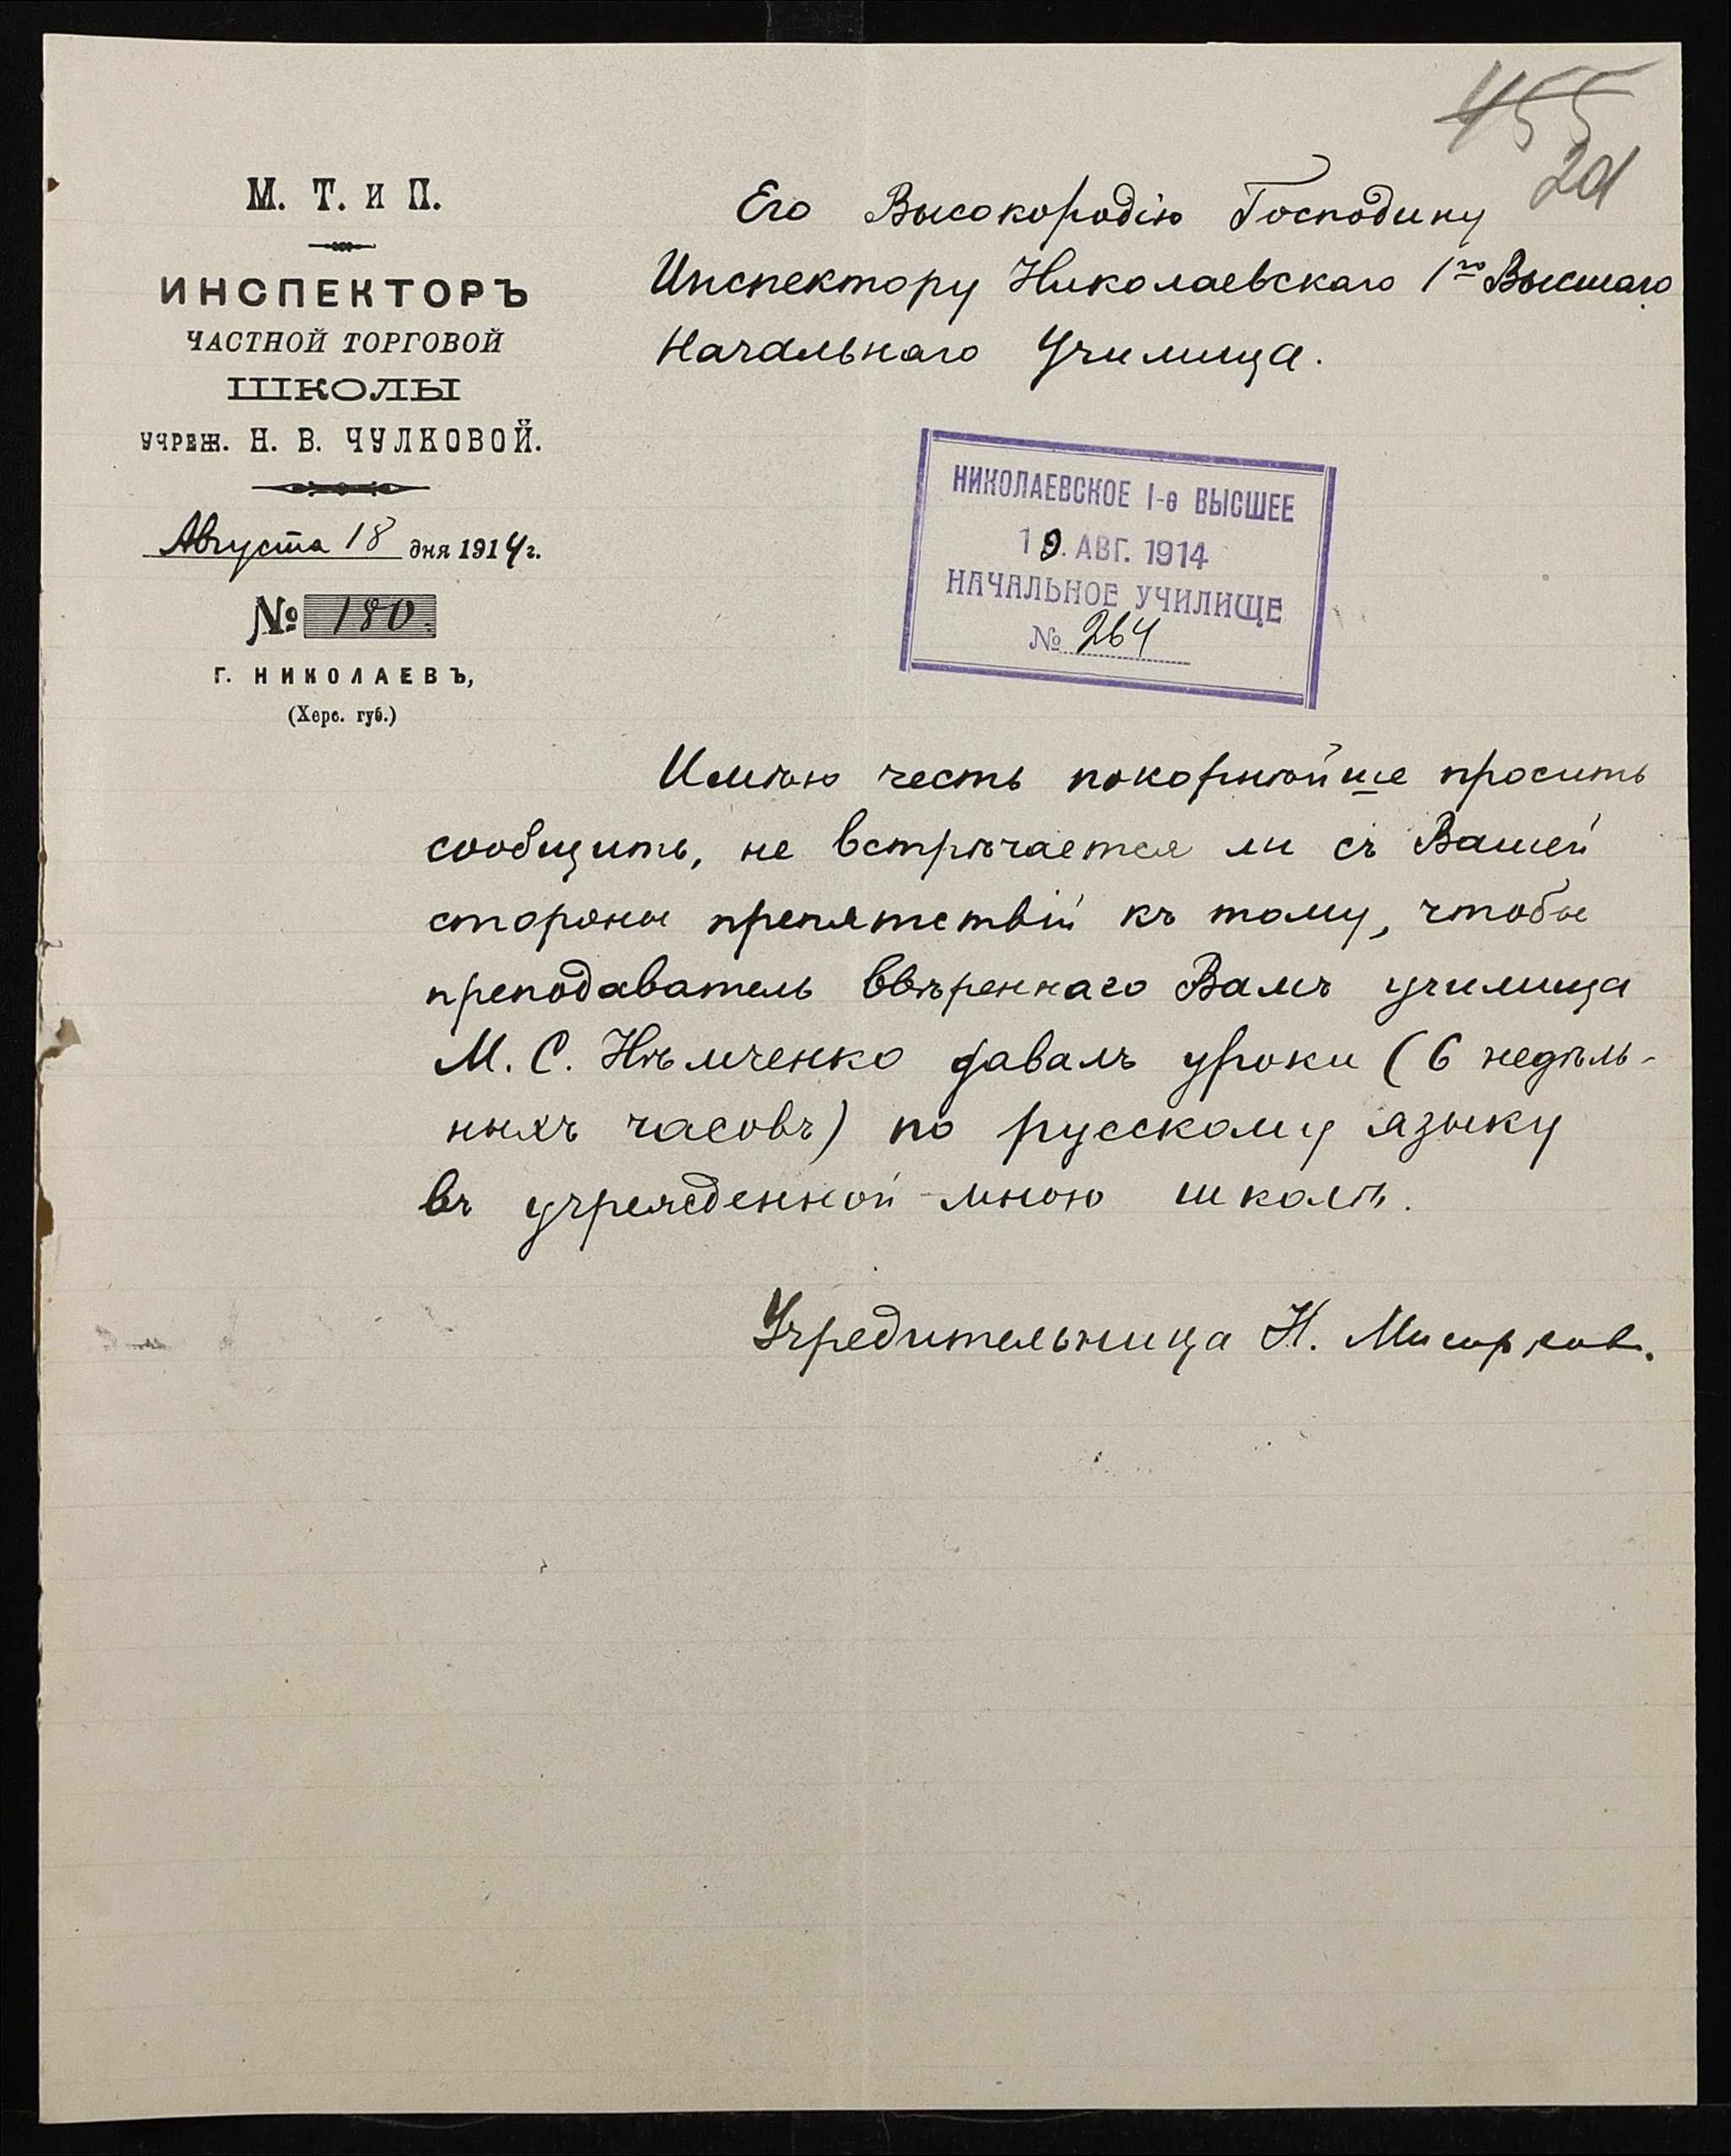 455
М. Т. и П.
ИНСПЕКТОРЪ
ЧАСТНОЙ ТОРГОВОЙ
ШКОЛЫ
УЧРЕЖ. Н. В. ЧУЛКОВОЙ.
Августа 18 дня 1914 г.
№ 180.
Г. НИКОЛАЕВЪ,
(Херс. губ.)
Его Высокородію Господину
Инспектору Николаевскаго 1го Высшаго
Начальнаго Училища.
НИКОЛАЕВСКОЕ 1-е ВЫСШЕЕ
19. АВГ. 1914
НАЧАЛЬНОЕ УЧИЛИЩЕ
№ 264
Имѣю честь покорнѣйше просить
сообщить, не встрѣчается ли съ Вашей
стороны препятствій къ тому, чтобы
преподаватель ввѣреннаго Вамъ училища
М. С. Нѣмченко давалъ уроки (6 недѣль-
ныхъ часовъ) по русскому языку
въ учрежденной мною школѣ.
Учредительница Н.